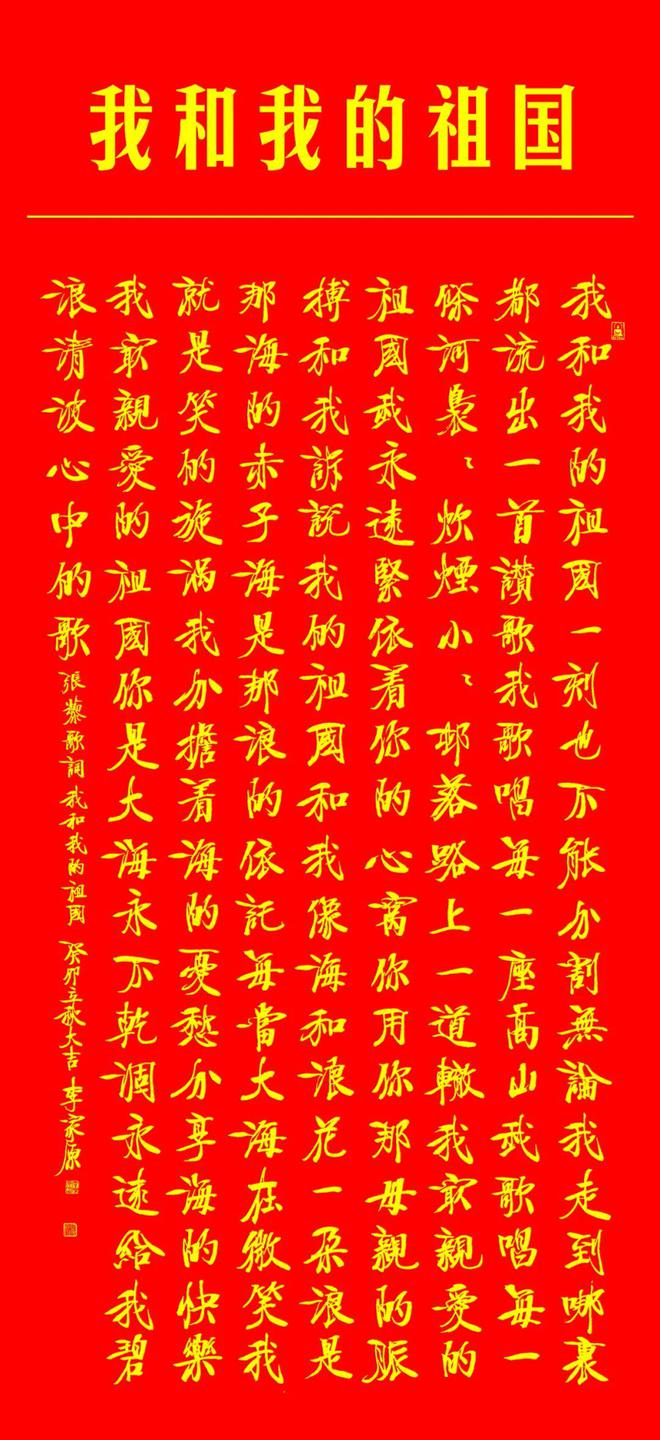 我和我的祖国
我和我的祖國一刻也不能分割無論我走到哪裏
都流出一首讚歌我歌唱每一座高山我歌唱每一
條河裊〻炊煙小〻邨落路上一道轍我冣親愛的
祖國我永遠緊依着你的心窩你用你那母親的脈
搏和我訴說我的祖國和我像海和浪花一朵浪是
那海的赤子海是那浪的依託每當大海在微笑我
就是笑的旋渦我分擔着海的憂愁分享海的快樂
我冣親愛的祖國你是大海永不乾涸永遠給我碧
浪清波心中的歌 張藜歌詞我和我的祖國 癸卯立秋大吉 李家原